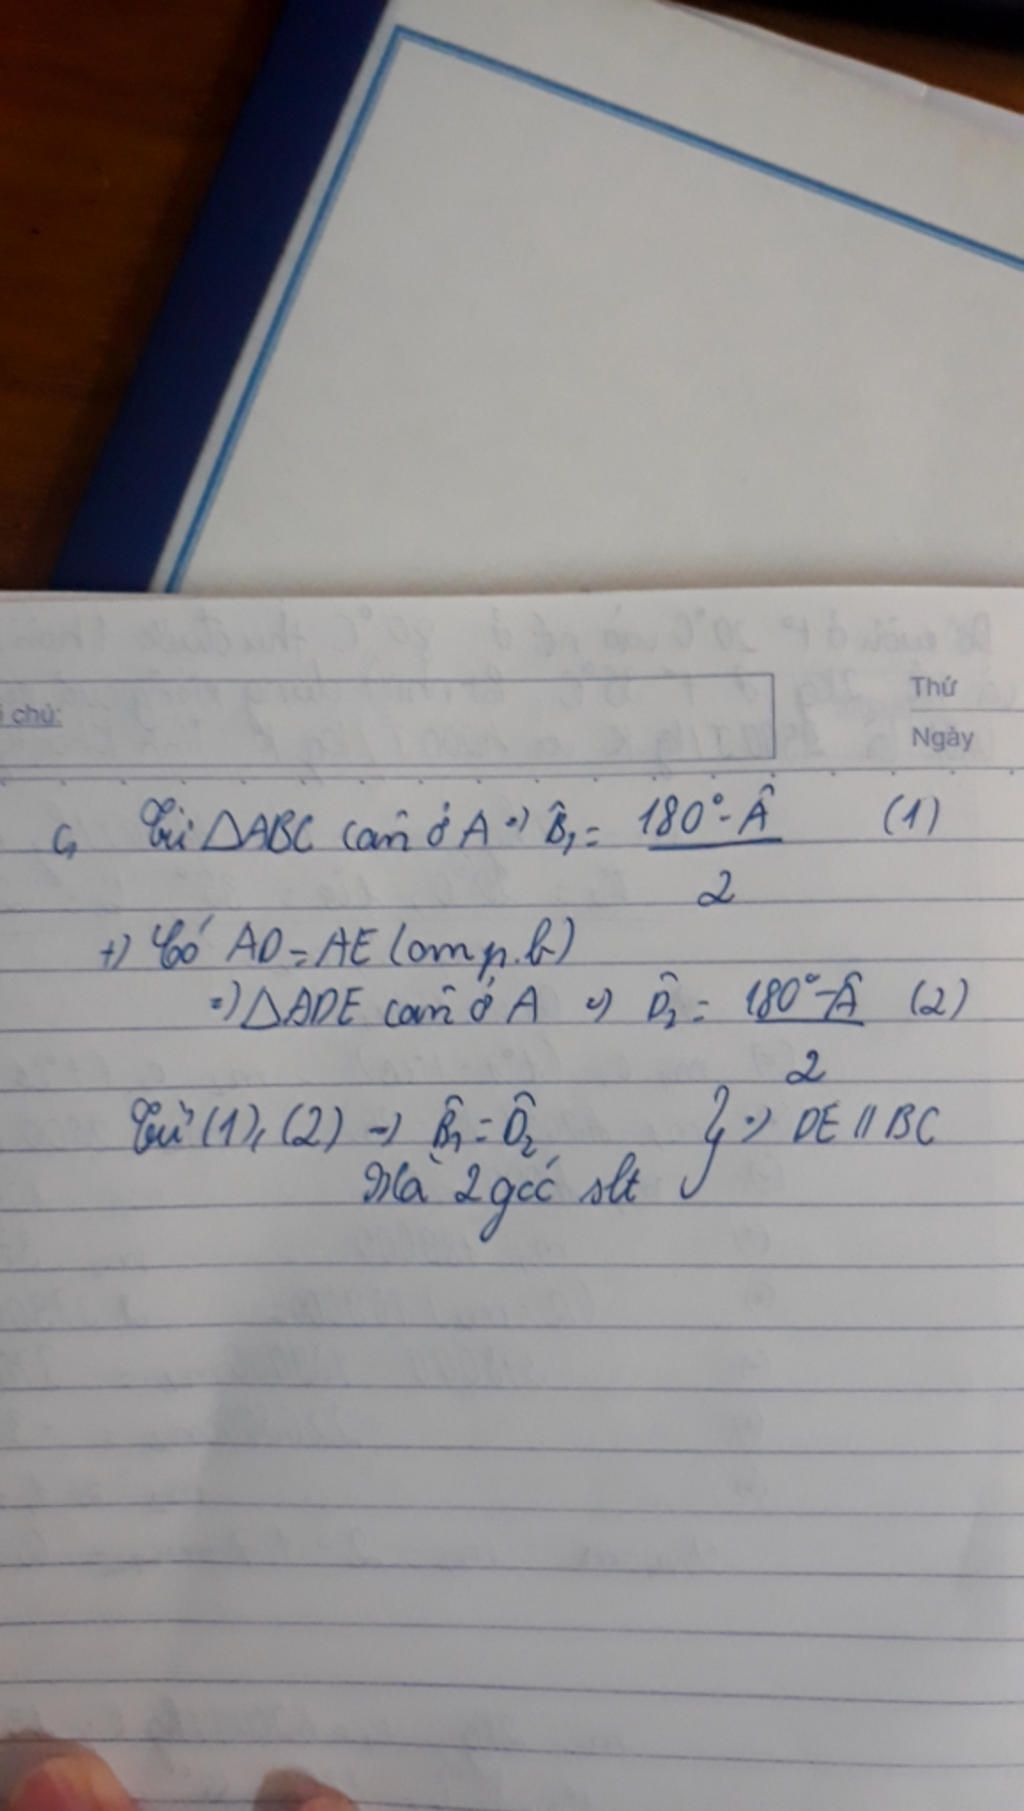 chú:
Thứ
Ngày
c, Từ △ABC cân ở A => B̂₁ = (180° - Â)/2 (1)
+) Có AD = AE (cm p.b)
=) △ADE cân ở A => D̂₂ = (180° - Â)/2 (2)
Từ (1), (2) => B̂₁ = D̂₂
Mà 2 góc slt } => DE // BC